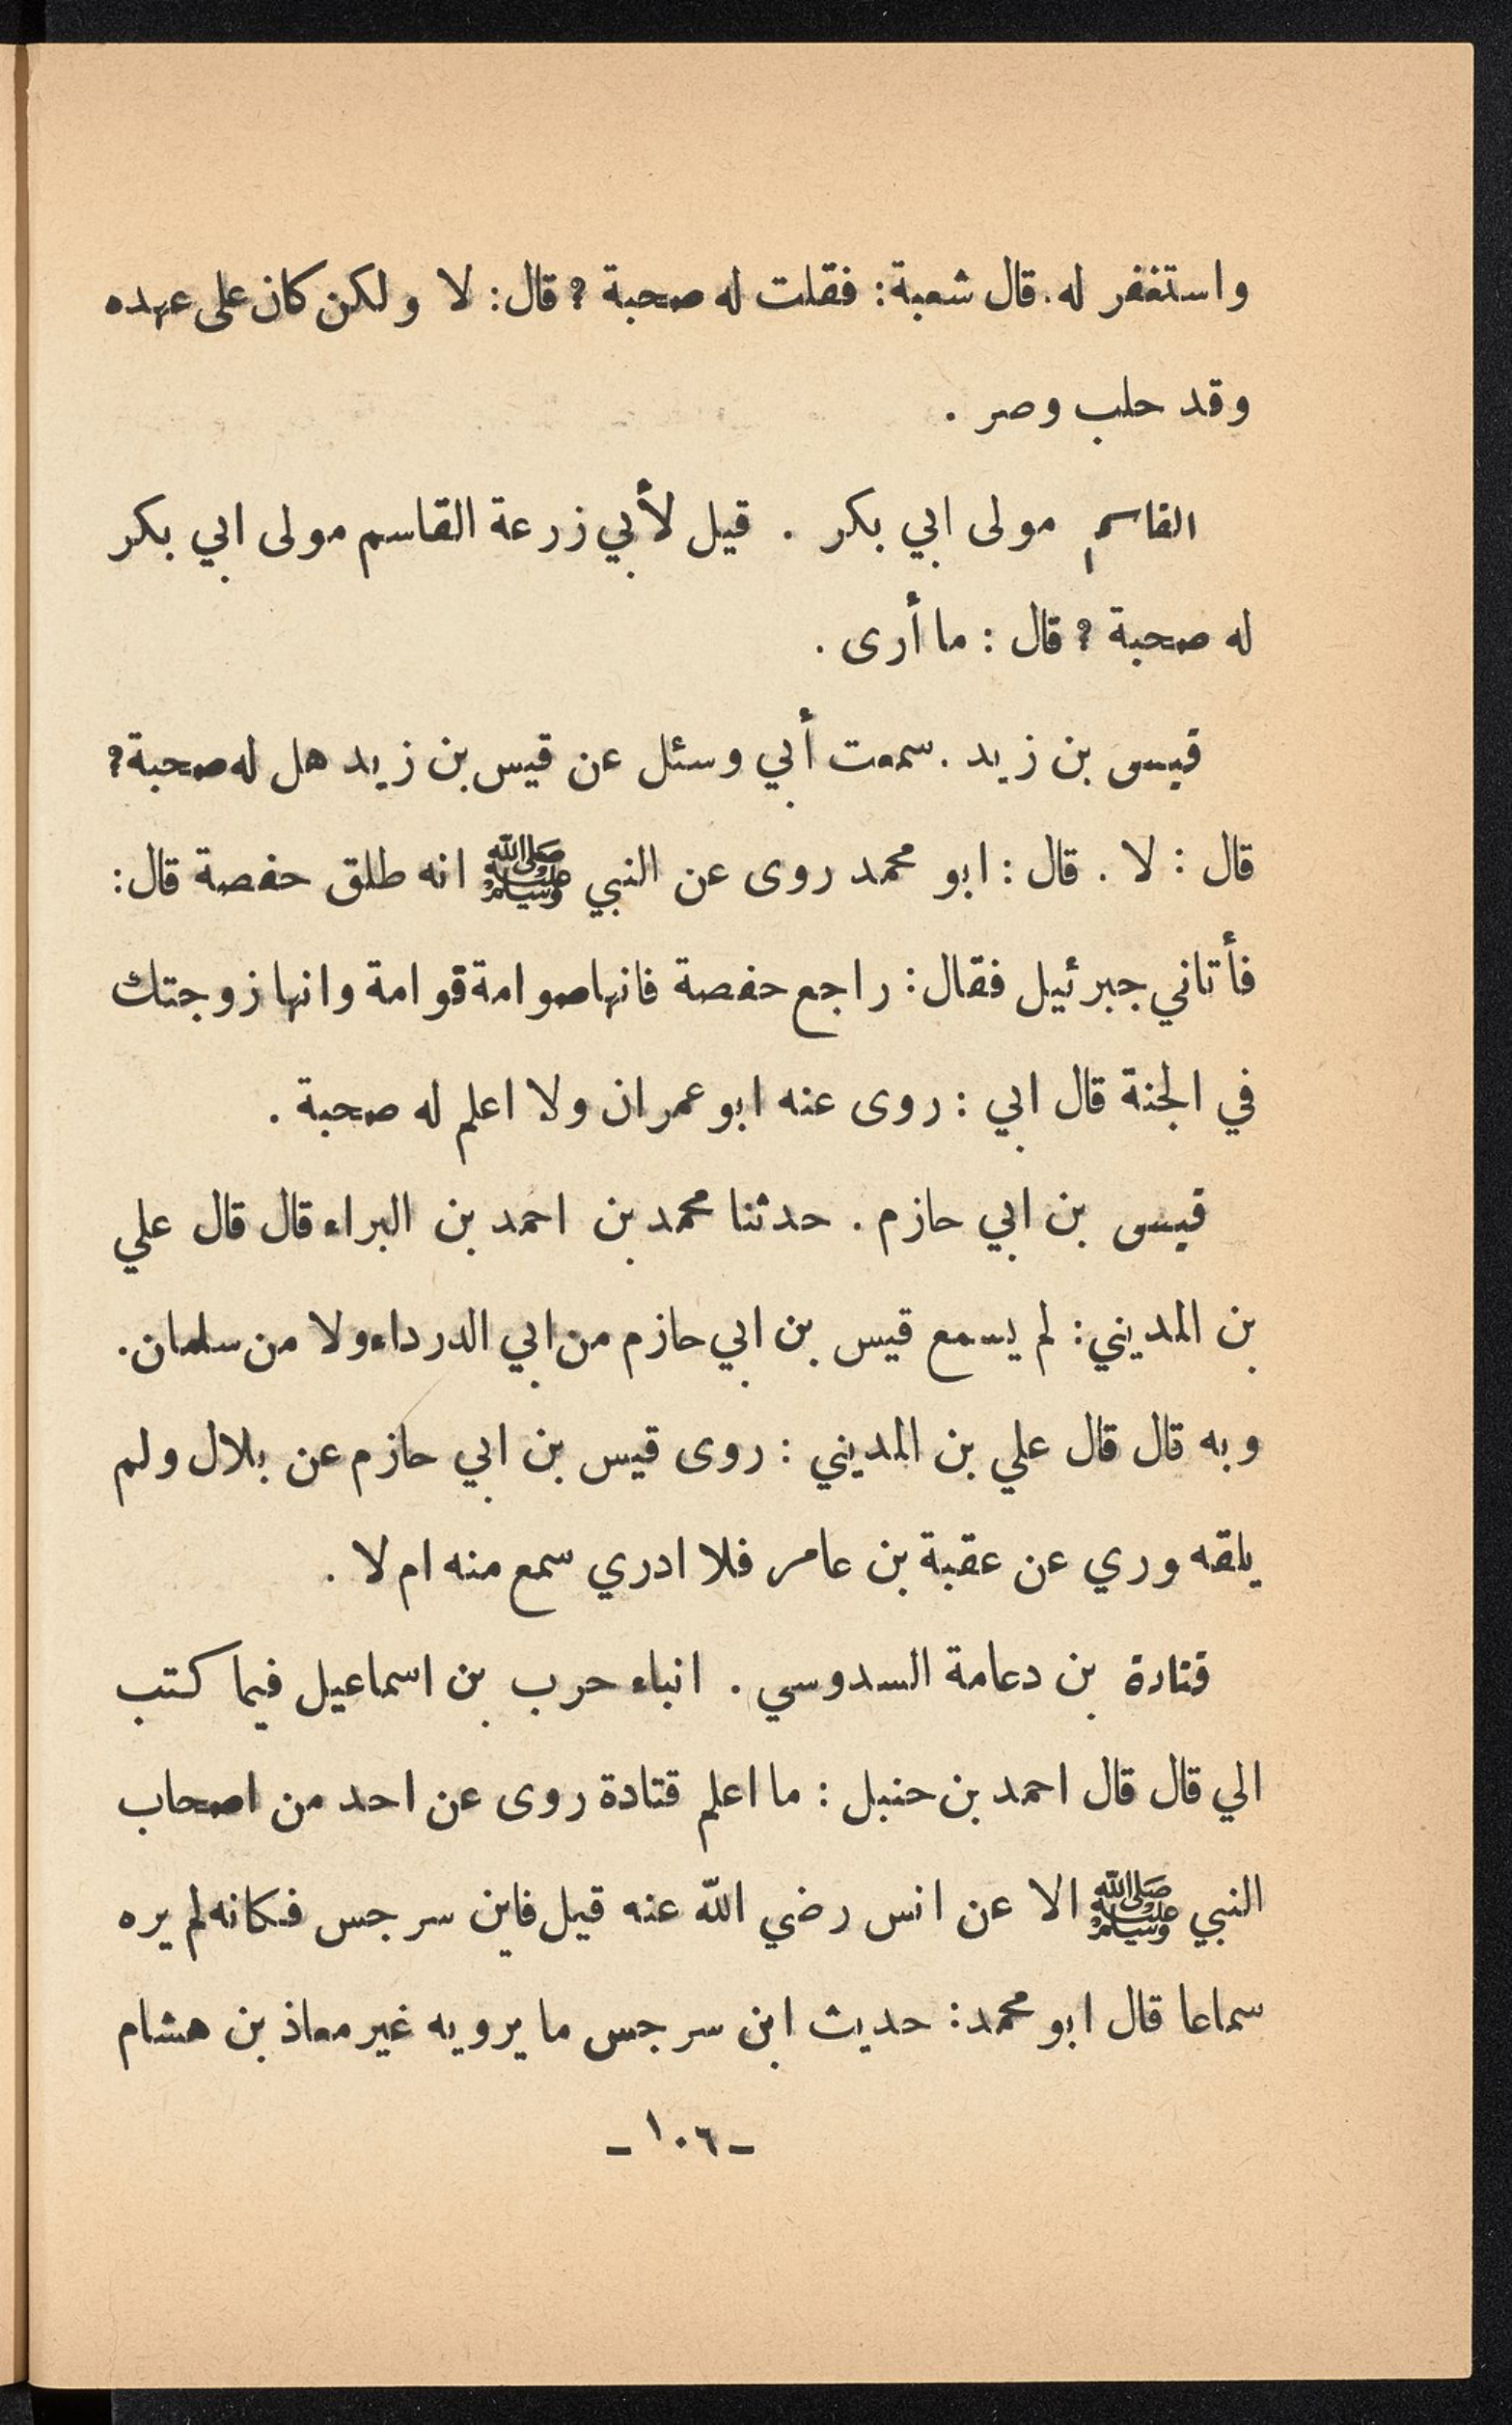 واستغفر له. قال شعبة: فقلت له صحبة ؟ قال: لا ولكن كان على عهده
وقد حلب وصر .
القاسم مولى ابي بكر . قيل لأبي زرعة القاسم مولى ابي بكر
له صحبة ؟ قال : ما أرى .
قيس بن زيد . سمعت أبي وسئل عن قيس بن زيد هل له صحبة ؟
قال : لا . قال : ابو محمد روى عن النبي ﷺ انه طلق حفصة قال:
فأتاني جبرئيل فقال: راجع حفصة فانها صوامة قوامة وانها زوجتك
في الجنة قال ابي : روى عنه ابو عمران ولا اعلم له صحبة .
قيس بن ابي حازم . حدثنا محمد بن احمد بن البراء قال قال علي
بن المديني: لم يسمع قيس بن ابي حازم من ابي الدرداء ولا من سلمان.
وبه قال قال علي بن المديني : روى قيس بن ابي حازم عن بلال ولم
يلقه وري عن عقبة بن عامر فلا ادري سمع منه ام لا .
قتادة بن دعامة السدوسي . انباء حرب بن اسماعيل فيما كتب
الي قال قال احمد بن حنبل : ما اعلم قتادة روى عن احد من اصحاب
النبي ﷺ الا عن انس رضي الله عنه قيل فابن سرجس فكانه لم يره
سماعا قال ابو محمد: حديث ابن سرجس ما يرويه غير معاذ بن هشام
- ١٠٦ -